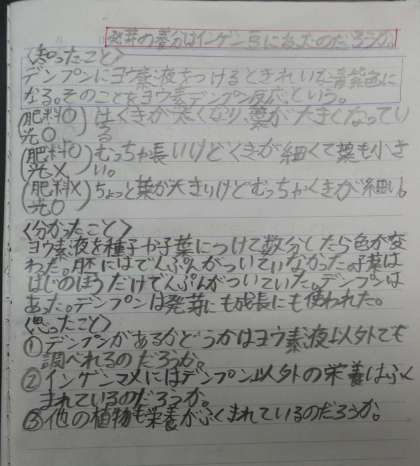 発芽の養分はインゲン豆にあったのだろうか。
〈知ったこと〉
デンプンにヨウ素液をつけるときれいな青紫色に
なる。そのことをヨウ素デンプン反応という。
(肥料〇 光〇) はくきが太くなり、葉が大きくなってい
る
(肥料〇 光×) むっちゃ長いけどくきが細くて葉も小さ
い。
(肥料× 光〇) ちょっと葉が大きいけどむっちゃくきが細い。
〈分かったこと〉
ヨウ素液を種子や子葉につけて数分したら色が変
わった。胚にはでんぷんがついていなかった。子葉は
はじのほうだけでんぷんがついていた。デンプンは
あった。デンプンは発芽にも成長にも使われた。
〈思ったこと〉
①デンプンがあるかどうかはヨウ素液以外でも
調べれるのだろうか。
②インゲンマメにはデンプン以外の栄養はふく
まれているのだろうか。
③他の植物も栄養がふくまれているのだろうか。